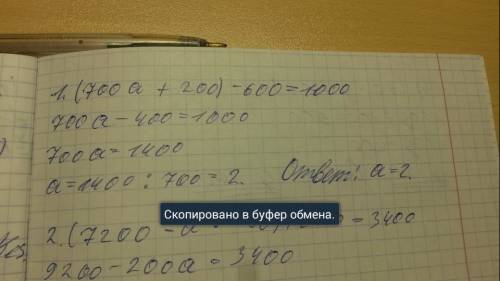 1. (700a + 200) - 600 = 1000
700a - 400 = 1000
700a = 1400
a = 1400 : 700 = 2. Ответ: a = 2.
Скопировано в буфер обмена.
2. (7200 - = 3400
9200 - 200a = 3400